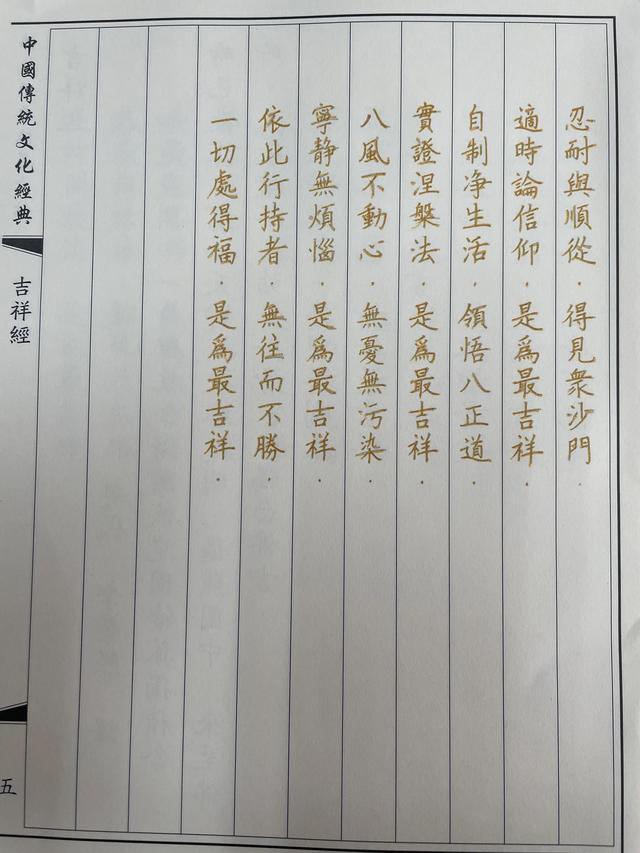 忍耐與順從．得見衆沙門．
適時論信仰．是爲最吉祥．
自制净生活．領悟八正道．
實證涅槃法．是爲最吉祥．
八風不動心．無憂無污染．
寧静無煩惱．是爲最吉祥．
依此行持者．無往而不勝．
一切處得福．是爲最吉祥．
中國傳統文化經典
吉祥經
五